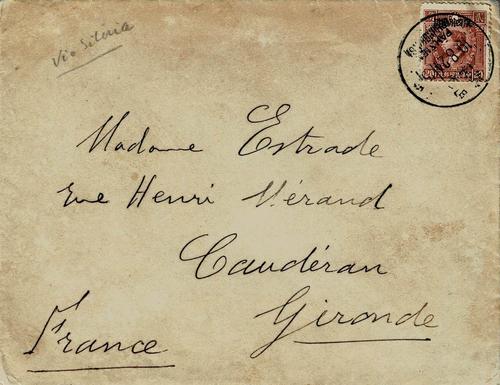 Via Sibéria
Madame Estrade
Rue Henri Mérand
Caudéran
Gironde
France